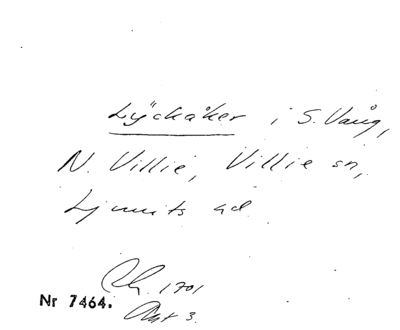 Lyckåker i S. Vång,
N. Villie, Villie sn,
Ljunits hd
1701
Nr 7464. Akt 3.